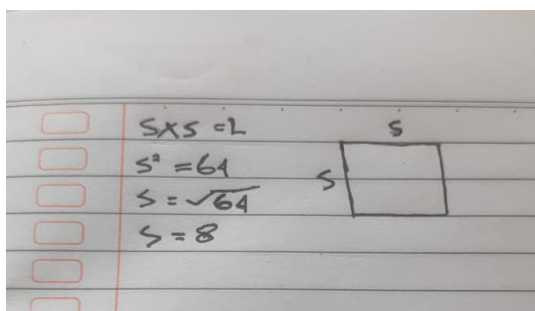 S×S = L
S² = 64
S = √64
S = 8
S
S